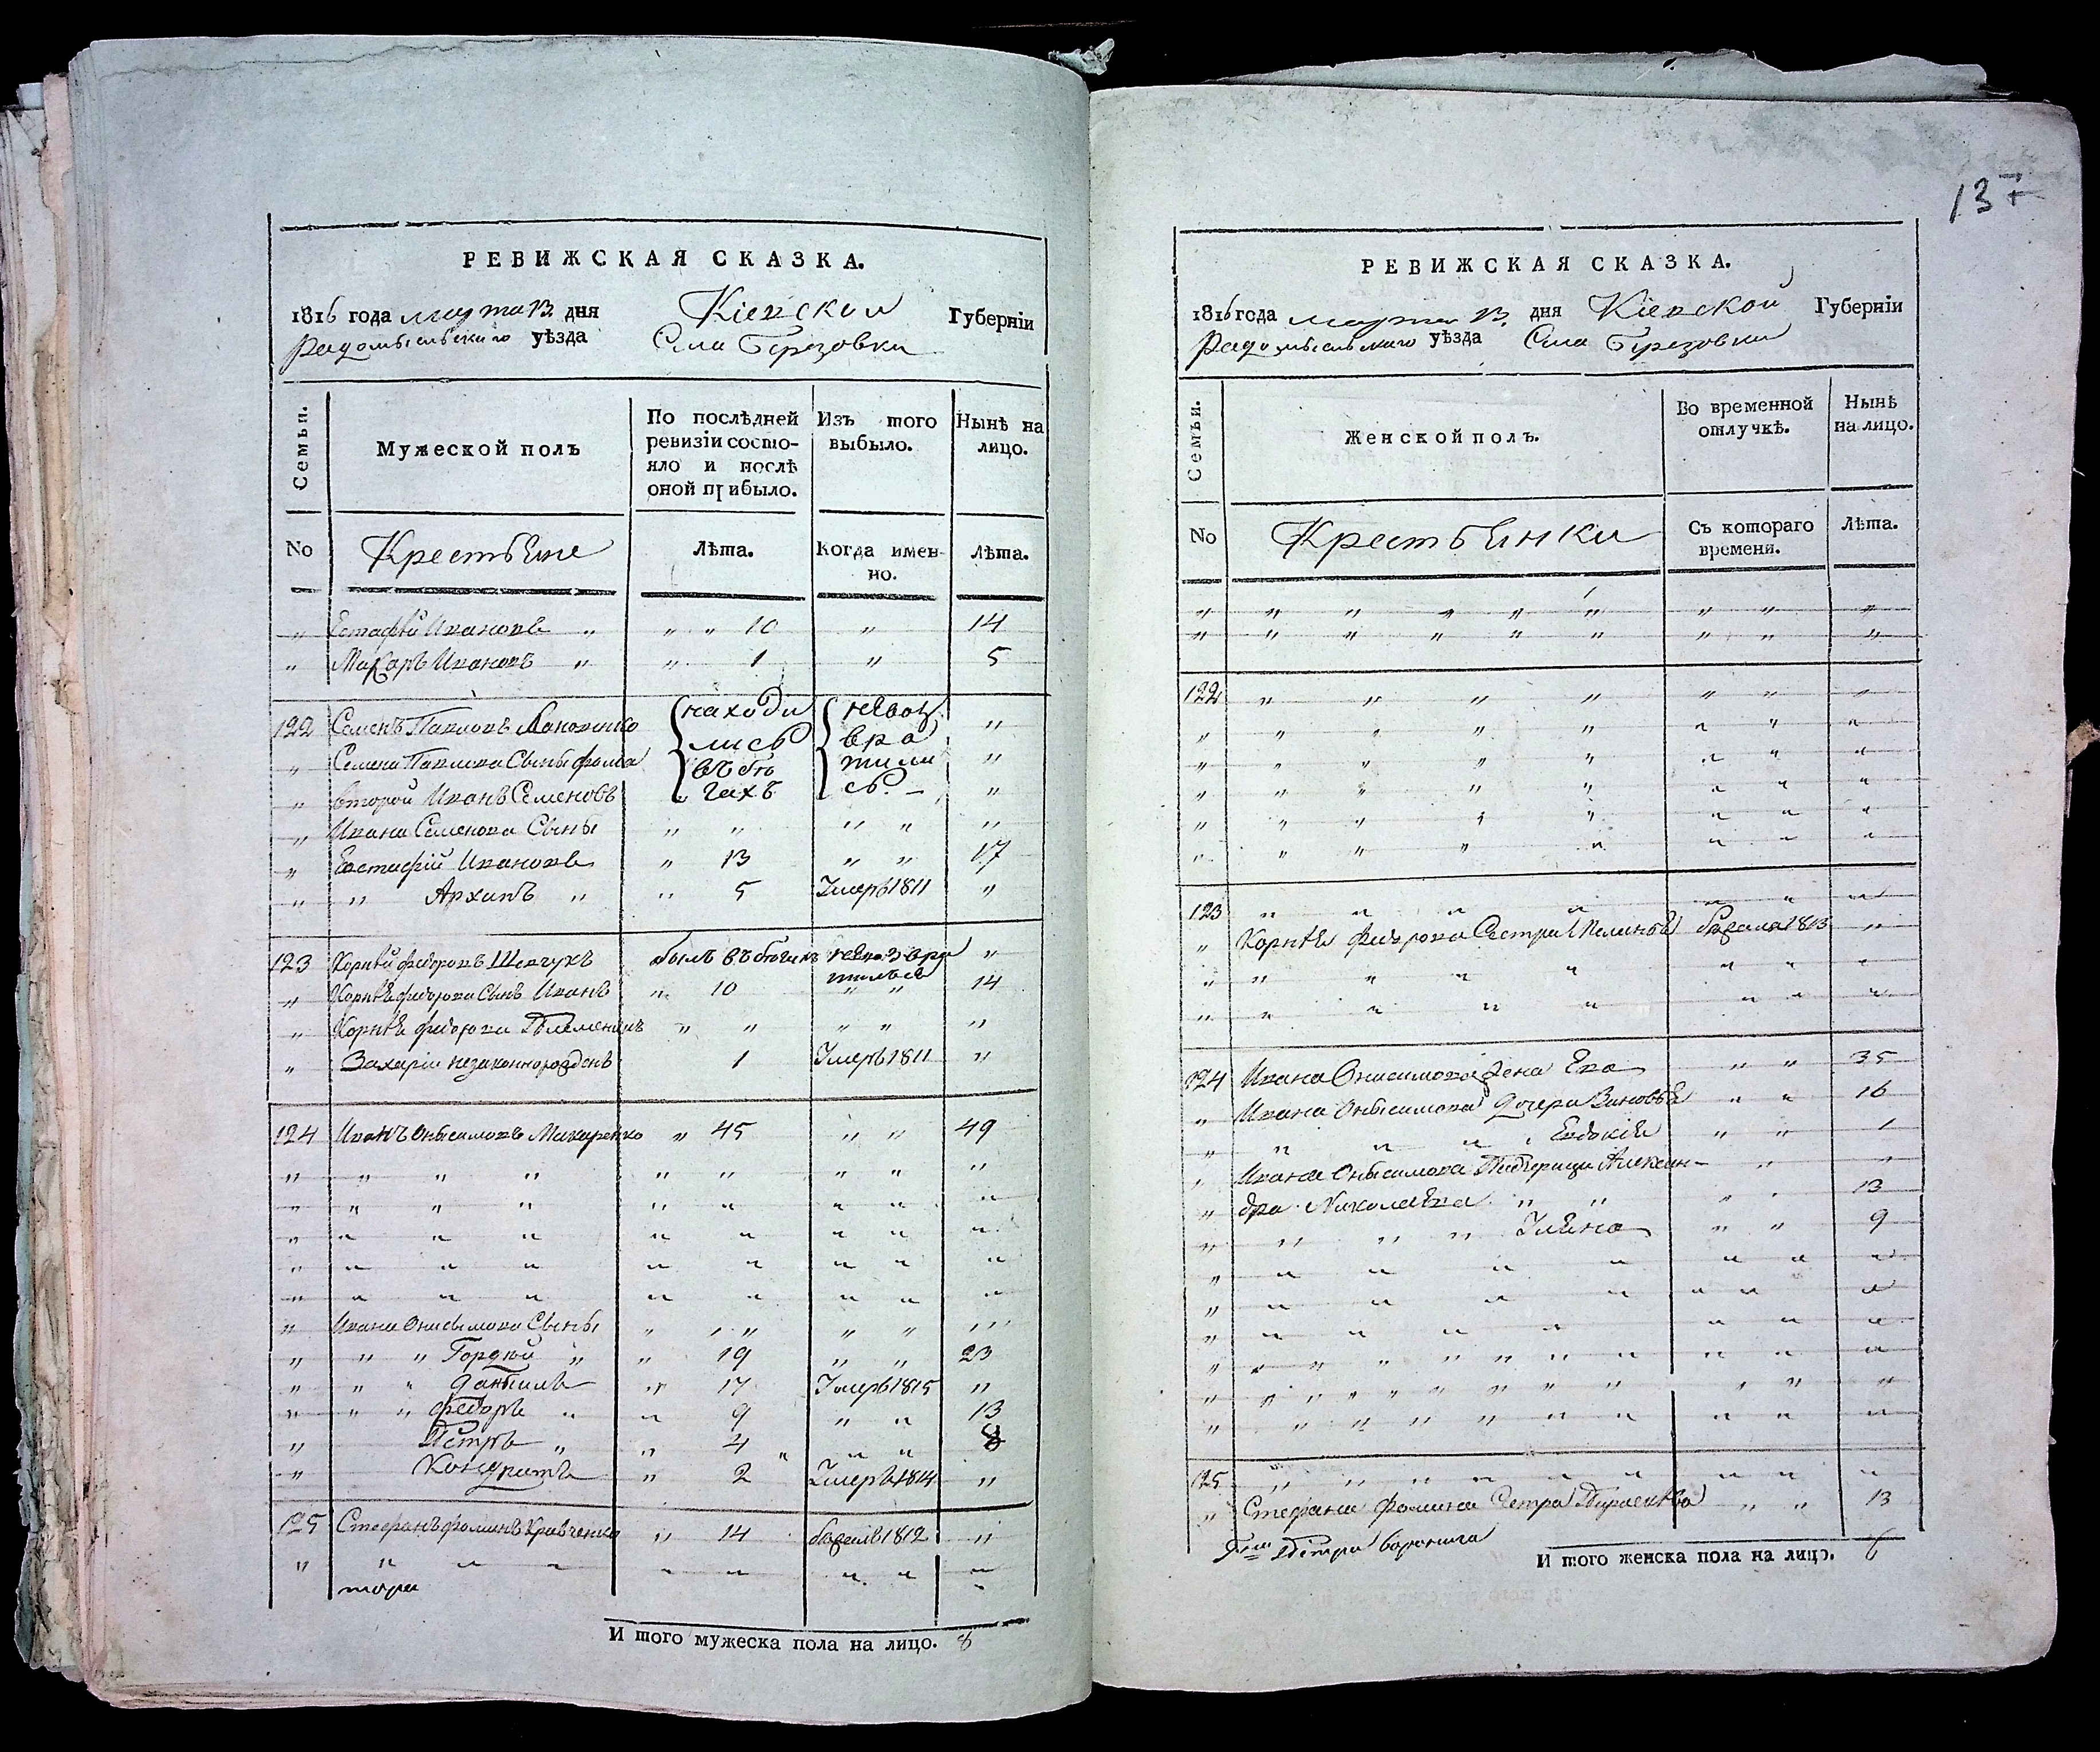 137
РЕВИЖСКАЯ СКАЗКА.
1816 года марта 13 дня Кіевской Губерніи
Радомысльскаго уѣзда Села Березовки
Семьи.
Мужеской полъ
По послѣдней ревизіи состояло и послѣ оной прибыло.
Изъ того выбыло.
Нынѣ на лицо.
No Крестьяне Лѣта. Когда именно. Лѣта.
" Естафій Ивановъ " " " 10 " 14
" Макаръ Ивановъ " " 1 " 5
122 Семенъ Павловъ { находи { невоз "
" Семена Павлова Сыны Фома лись вра "
" второй Иванъ Семеновъ въ бѣгахъ тились. "
" Ивана Семенова Сыны " " " " "
" Евстафій Ивановъ " 13 " " 17
" " Архипъ " " 5 Умеръ 1811 "
123 Корнѣй Федоровъ Шевчукъ былъ въ бѣгахъ невозвратилься "
" Корнѣя Федорова Сынъ Иванъ " 10 " " 14
" Корнѣя Федорова Племенникъ " " " " "
" Захарій незаконнорожденъ 1 Умеръ 1811 "
124 Иванъ Онысимовъ Макаренко " 45 " " 49
" Ивана Онисимова Сыны " " " " "
" " " Гордѣй " " 19 " " 23
" " " Данылъ " 17 Умеръ 1815 "
" " " Федоръ " " 9 " " 13
" Петръ " " 4 " " " 8
" Кондратъ " 2 Умеръ 1814 "
125 Стефанъ Фоминъ Кравченко " 14 бѣжалъ 1812 "
" " " " " " " " "
тора
И того мужеска пола на лицо. 8
РЕВИЖСКАЯ СКАЗКА.
1816 года марта 13 дня Кіевской Губерніи
Радомысльскаго уѣзда Села Березовки
Семьи.
Женской полъ.
Во временной отлучкѣ.
Нынѣ на лицо.
No Крестьянки Съ котораго времени. Лѣта.
122 " " " " " " "
123 " " " " " " "
" Корнѣя Федорова Сестра бѣжала 1813 "
124 Ивана Онисимова жена Ева " " 35
" Ивана Онысимова дочери Зиновья " " 16
" " " " Евдокія " " 1
" Ивана Онысимова Падчерицы Алексан- " "
" дра Николаева " " " " 13
" " " " Ульяна " " 9
125 " " " " " " " " "
" Стефана Фомина Сестра " " 13
Петра
И того женска пола на лицо. 6